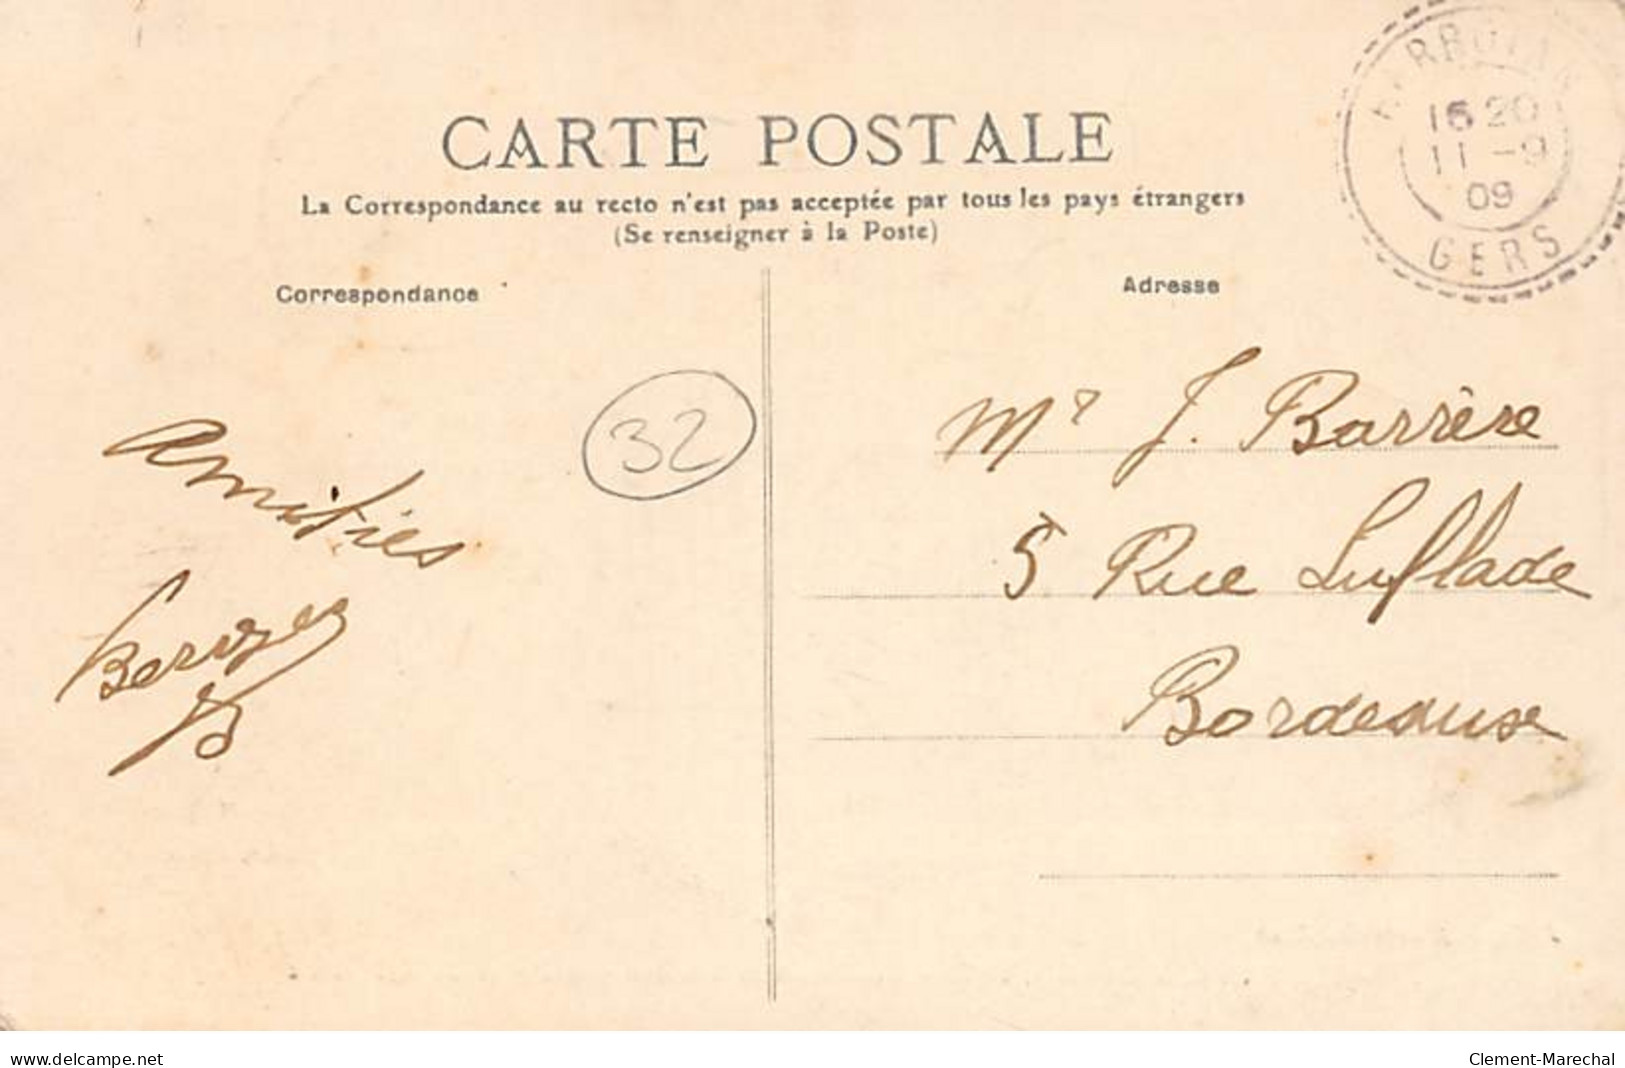 CARTE POSTALE
La Correspondance au recto n'est pas acceptée par tous les pays étrangers
(Se renseigner à la Poste)
Correspondance
Adresse
16 20
11 -9
09
GERS
32
Amitiés
Mr J. Barrère
5 Rue Luflade
Bordeaux
www.delcampe.net
Clement-Marechal